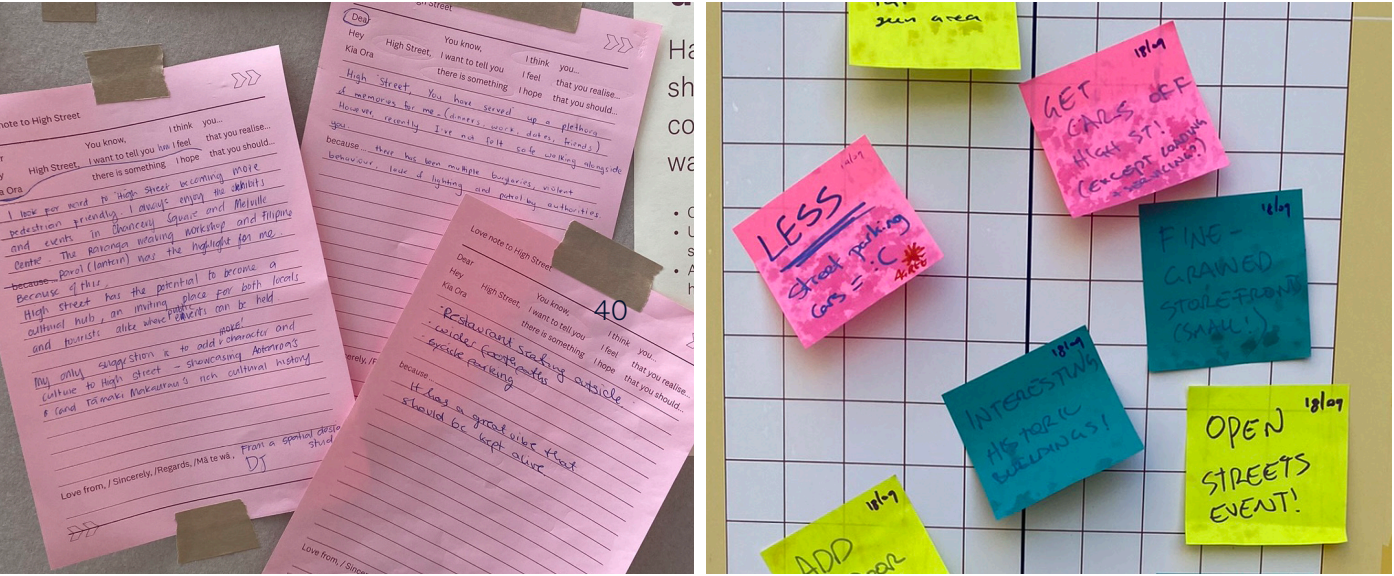 note to High Street
I think you...
You know,
I want to tell you how I feel that you realise...
High Street,
there is something I hope that you should...
Ora
I look forward to High Street becoming more
pedestrian friendly. I always enjoy the exhibits
and events in Chancery Square and Melville
centre. The Raranga weaving workshop and Filipino
because parol (lantern) was the highlight for me.
Because of this,
High Street has the potential to become a
cultural hub, an inviting public place for both locals
and tourists alike where events can be held
My only suggestion is to add more! character and
culture to High Street - showcasing Aotearoa's
& (and Tāmaki Makaurau's rich cultural history
From a spatial
Love from, / Sincerely, /Regards, /Mā te wā, DJ
Street
Dea
Hey
Kia Ora
High Street,
You know,
I want to tell you
there is something
I think you...
I feel that you realise...
I hope that you should...
High Street, You have served up a plethora
of memories for me, (dinners, work, dates, friends)
However, recently I've not felt safe walking alongside
you
because... there has been multiple burglaries, violent
behaviour, lack of lighting and patrol by authorities
Love note to High Street
Dear
Hey
Kia Ora
High Street,
You know,
I want to tell you
there is something
40
I think you...
I feel that you realise...
I hope that you should...
· Restaurant seating outside.
· wider footpaths
· bicycle parking
because...
It has a great vibe that
should be kept alive
Love from, / Sincere
Ha
sh
co
wa
area
18/09
GET
CARS OFF
HIGH ST!
(EXCEPT LOADING
+ SERVICING?)
LESS
street parking
cars = :C
AGREE
18/09
FINE-
GRAINED
STOREFRONTS
(SMALL!)
18/09
INTERESTING
HISTORIC
BUILDINGS!
18/09
OPEN
STREETS
EVENT!
18/09
ADD